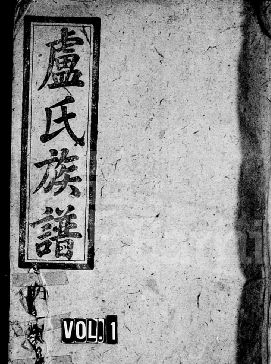 盧氏族譜
VOL. 1